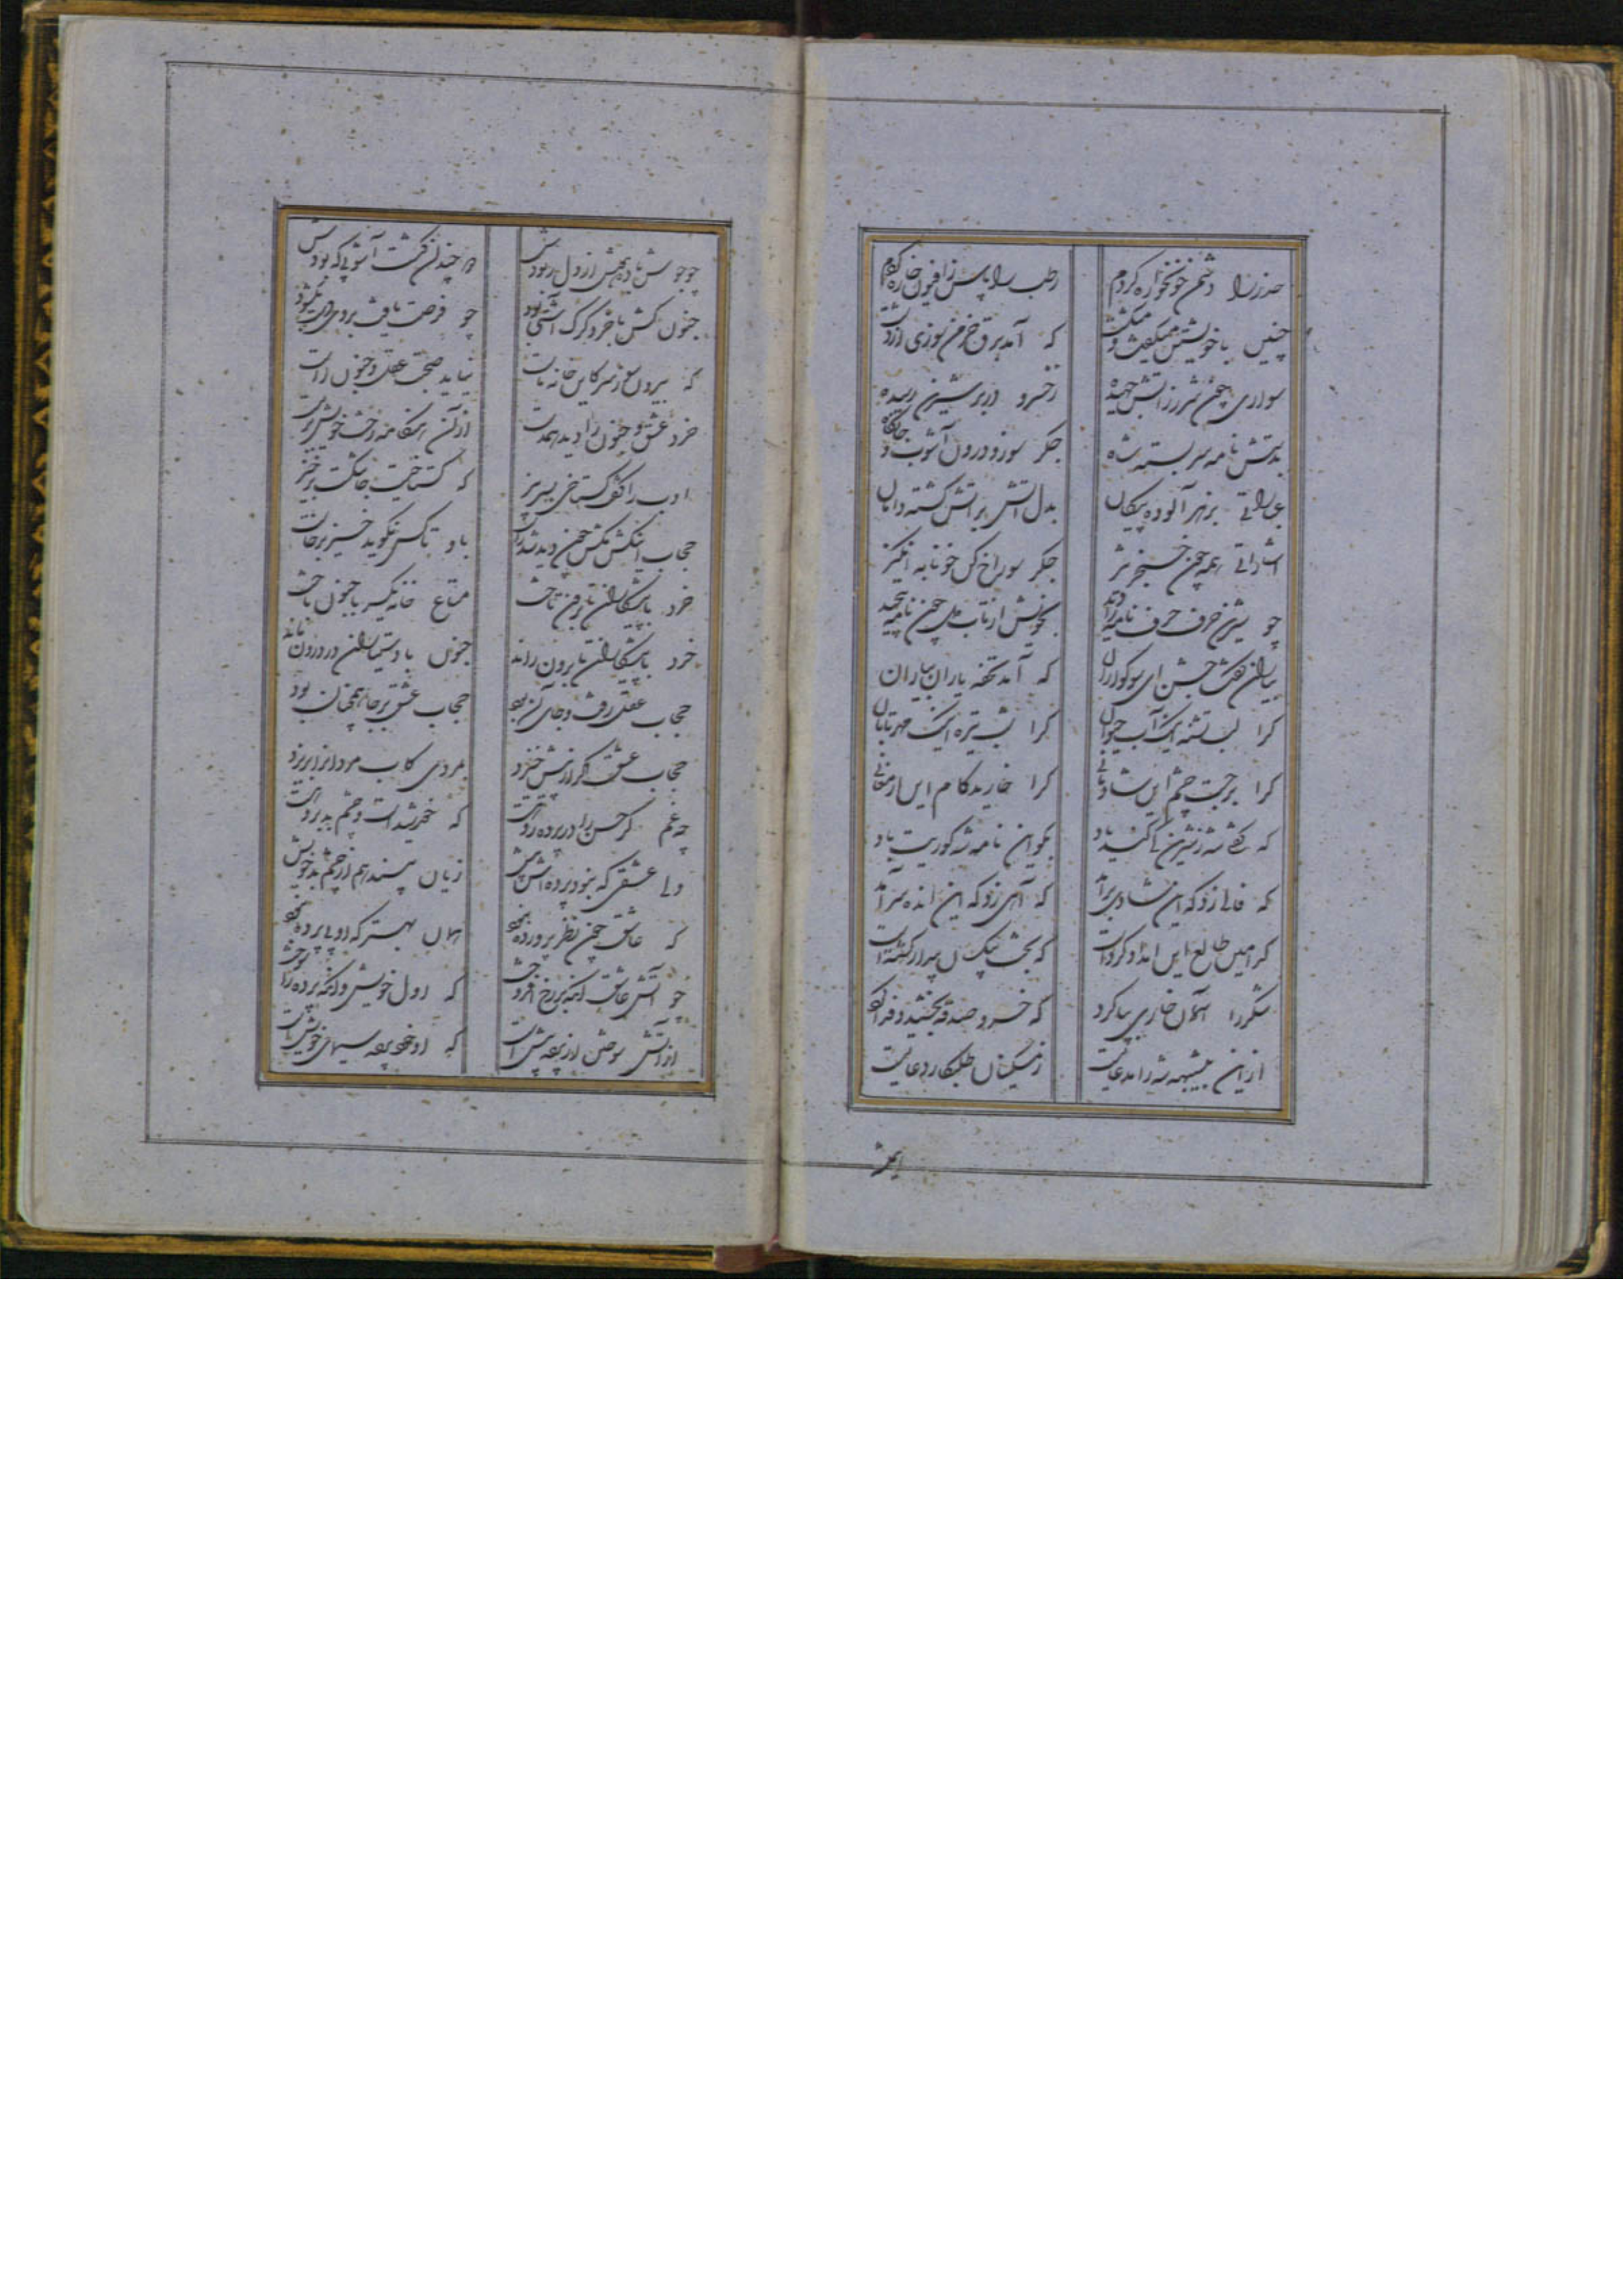 حذر را دشمن خونخواره کردم رطب را پاس از افیون خاره کردم
چنین با خویشتن میگفت و میگشت که آمد برق خرمن سوزی از دشت
سواری چون شرر ز آتش جهیده ز خسرو در بر شیرین رسیده
بدستش نامه سر بسته شاه جگر سوز و درون آشوب و جانکاه
عباراتی بزهر آلوده پیکان بدل آتش بر آتش گشته دامان
اشاراتی همه چون خنجر تیز جگر سوراخ کن خونابه انگیز
چو شیرین حرف حرف نامه را دید بخویش از تاب دل چون نامه پیچید
بیاران گفت جشن ای سوکواران که آمد تحفه یاران بیاران
کرا لب تشنه اینک آب حیوان کرا شب تیره اینک مهر تابان
کرا برجست چشم این شادمانی کرا خارید کام این ارمغانی
که گفتی شه ز شیرین کی کند یاد بگو این نامه شه کوریت باد
که فالی زد که این شادی برآمد که آهی زد که این انده سرآمد
کرامین طالع این امداد کرده است که بخت نیکش بیدار گشته است
شکر را آسمان خاری بپا کرد که خسرو صدقه بخشید و فدا کرد
از این بیشبهه شه را مدعائیست ز مسکینان طلبکار دعائیست
چو جوش باده هوش از دل ربودش دو چندان گشت آشوبی که بودش
جنون کش با خرد گرگ آشتی بود چو فرصت یافت بر وی دست بگشود
که بیرون نه ز سر کاین خانه ماست نیاید صحبت عقل و جنون راست
خرد عشق و جنون را دید همدست از آن هنگامه رخت خویش بربست
ادب را گفت گستاخی که برخیز که گستاخیست جا نگشت برخیز
حجاب اینکش مکش چون دید شد راست باو تا کس نگوید خیز برخاست
خرد با پیشکاران تا برون تاخت متاع خانه یکسر با جنون باخت
خرد با پیشکاران تا برون راند جنون با دستیاران در درون ماند
حجاب عقل رفت و جای آن بود حجاب عشق بر جا همچنان بود
حجاب عشق گر از پیش خیزد بمردی کاب مردان را بریزد
چه غم گر حسن را در پرده روی است که خورشید است و چشم بد بر اوست
ولی عشقی که نبود پرده‌اش پیش زیان بیند هم از چشم بد خویش
که عاشق چون نظر پرورده نبود همان بهتر که او بی پرده نبود
چو آتش عاشق آنگه بر رخ افروخت که اول خویش و آنگه پرده را سوخت
از آتش سوختن از پرده پیش است که او خود پرده سیمای خویش است